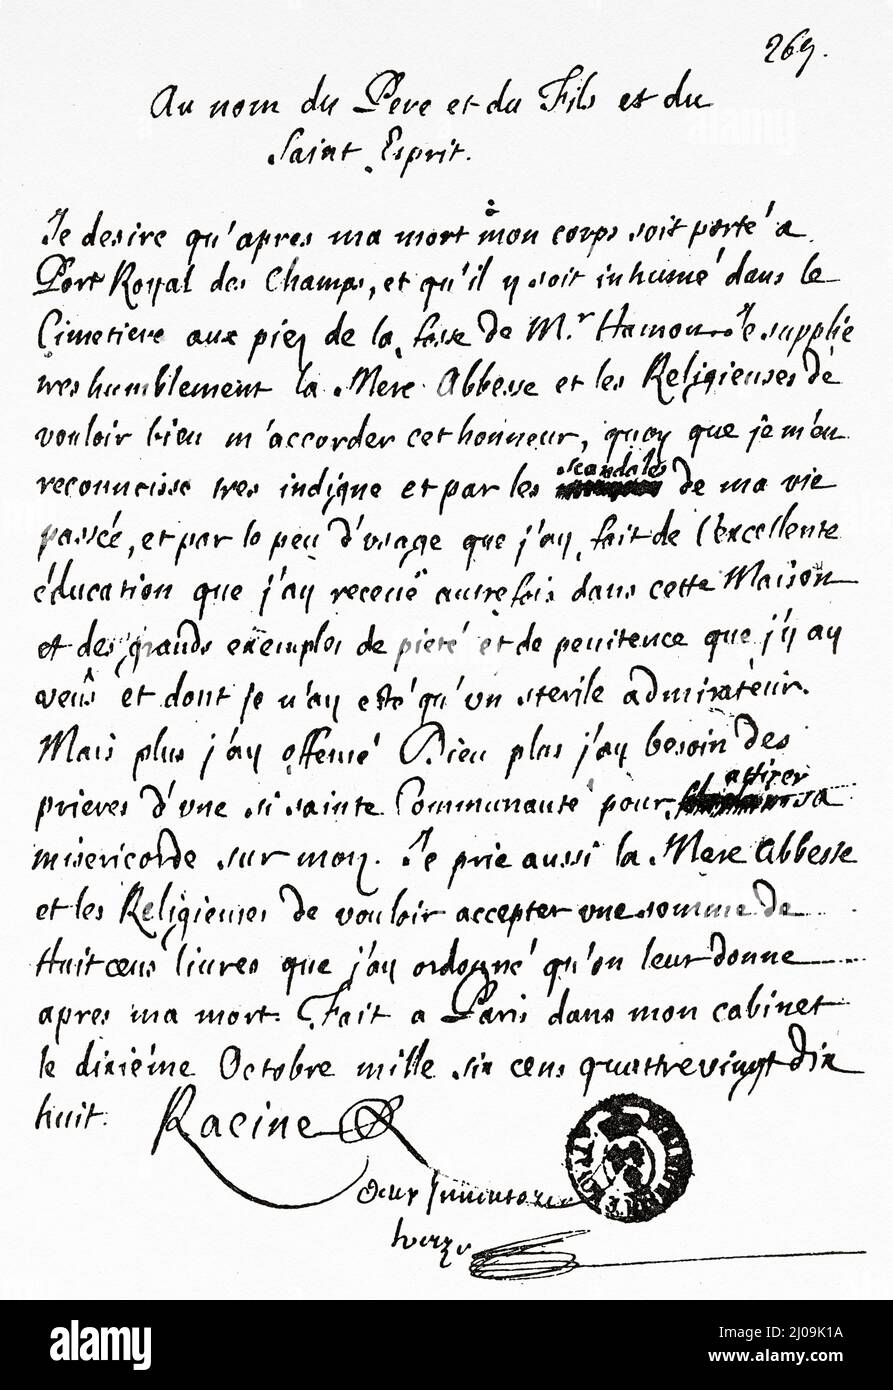 269.
Au nom du Pere et du Fils et du
Saint Esprit.
Je desire qu'apres ma mort mon corps soit porté a
Port Royal des Champs, et qu'il y soit inhumé dans le
Cimetiere aux piez de la fosse de Mr Hamon. Je supplie
tres humblement la Mere Abbesse et les Religieuses de
vouloir bien m'accorder cet honneur, quoy que je m'en
reconnoisse tres indigne et par les scandales de ma vie
passée, et par le peu d'usage que j'ay fait de l'excellente
éducation que j'ay receuë autrefois dans cette Maison
et des grands exemples de pieté et de penitence que j'y ay
veus et dont je n'ay esté qu'un sterile admirateur.
Mais plus j'ay offensé Dieu plus j'ay besoin des
prieres d'une si sainte Communauté pour attirer sa
misericorde sur moy. Je prie aussi la Mere Abbesse
et les Religieuses de vouloir accepter une somme de
huit cens livres que j'ay ordonné qu'on leur donne
apres ma mort. Fait a Paris dans mon cabinet
le dixiéme Octobre mille six cens quattre vingt dix
huit.
Racine
alamy
Image ID: 2J09K1A
www.alamy.com